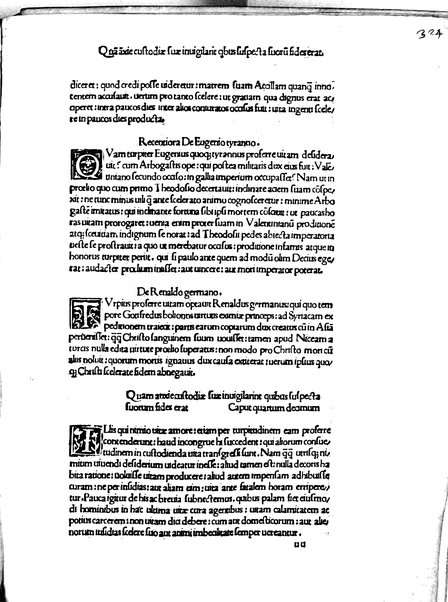 324
Quã ãxie custodiæ suæ inuigilarit qbus suspecta suorũ fides erat.
diceret: quod credi posse uideretur: matrem suam Atillam quanq̃ inno
centem accusauit. uerum pro tanto scelere: ut gratiam qua dignus erat ac
operet: intra paucos dies inter alios coniuratos occisus fuit: uita ingenti scele
re in paucos dies producta.
Recentiora De Eugenio tyranno.
QVam turpiter Eugenius quoq; tyrannus proferre uitam desidera
uit? cum Arbogastis ope: qui postea militaris dux eius fuit: Vale
tiniano secundo occiso: in gallia imperium occupasset? Nam ut in
prœlio quo cum primo Theodosio decertauit: inclinare aciem suam cõspe
xit: ne tunc minus uili q̃ ante scelerato animo cognosceretur: minime Arbo
gastẽ imitatus: qui inclinante fortuna sibi ipsi mortem cõsciuit: ut paucas ho
ras uitam prorogaret: uenia enim prœter suam in Valentinianũ proditionẽ
atq; scœuitiam, indignum se norat: ad Theodosii pedes abiecta imperatoria
ueste se prostrauit: a quo ut merebatur occisus: proditione infamis atque in
honorus turpiter periit. qui si paulo ante quem ad modũ olim Decius ege
rat: audacter prœlium inisset: aut uincere: aut mori imperator poterat.
De Renaldo germano.
TVrpius proferre uitam optauit Renaldus germanus: qui quo tem
pore Gotfredus bolionis uirtutis eximiæ princeps: ad Syriacam ex
peditionem traiecit: partis earum copiarum dux creatus cũ in Asiã
peruenisset: q̃q̃ Christo sanguinem suum uouisset: tamen apud Niceam a
turcis nulla edita uirtute prœlio superatus: non modo pro Christo mori cũ
aliis noluit: quorum mortis ignauus dux causa extiterat: uerum ipsus quo
q; Christi scelerate fidem abnegauit.
Quam anxie custodiæ suæ inuigilarint quibus suspecta
suorum fides erat Caput quartum decimum
ILlis qui nimio uitæ amore: etiam per turpitudinem eam proferre
contenderunt: haud incongrue hi succedent: qui aliorum consue
tudinem in custodienda uita transgressi sunt. Nam q̃q̃ utrisq; ni
mium uiuendi desiderium uideatur inesse: aliud tamen est: nulla decoris ha
bita ratione: uoluisse uitam producere: aliud autem impensam adhibuisse
curam: ne per insidias: aut aliam eim: uita ante fatalem horam erripere
tur. Pauca igitur de his ac breuia subnectemus. quibus palam fiet eiusmo
di hominibus in hac ultima uitæ cura agentibus: uitam calamitatem ac
potius carcerem: non uitam dici debere: cum aut domesticorum: aut alie
norum insidias scelere suo aut animi imbecilitate semper uereantur.